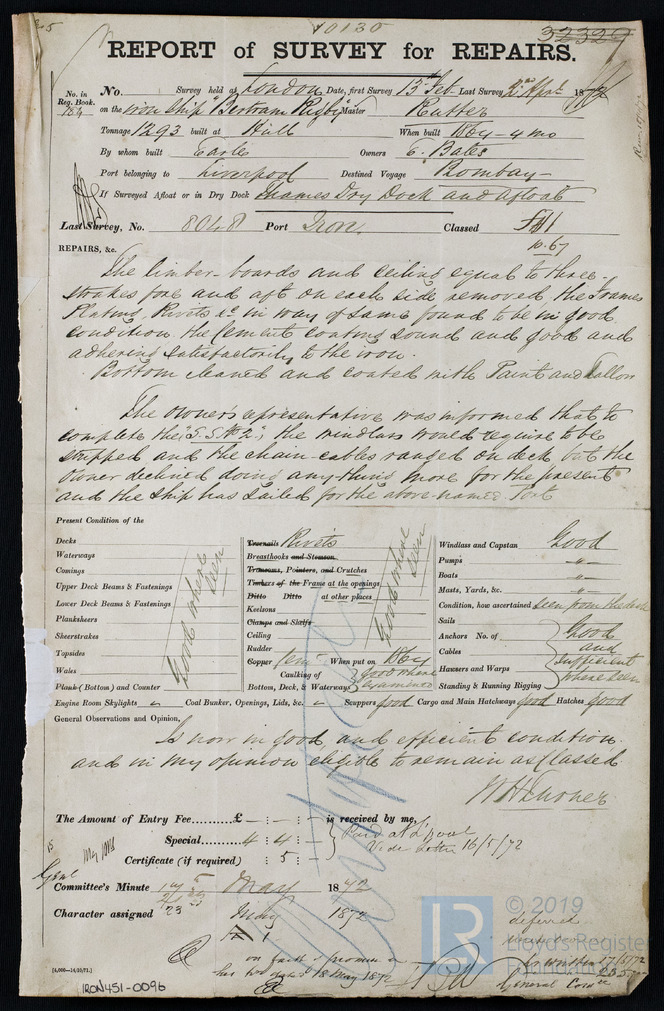 10135
32329
REPORT of SURVEY for REPAIRS.
No. in Reg. Book. 184 No. Survey held at London Date, first Survey 13th Feb. Last Survey 2nd Apr 1872
on the Iron Ship "Bertram Rigby" Master Rutter
Tonnage 1293 built at Hull When built 1867 - 4 mo
By whom built Earles Owners E. Bates
Port belonging to Liverpool Destined Voyage Bombay -
If Surveyed Afloat or in Dry Dock Thames Dry Dock and Afloat
Last Survey, No. 8048 Port Iron. Classed
10.67
REPAIRS, &c.
The limber-boards and ceiling equal to three-
strakes fore and aft on each side removed the Frames
Plating, Rivets &c in way of same found to be in good
condition the Cement coating sound and good and
adhering satisfactorily to the iron.
Bottom cleaned and coated with Paint and Tallow
The owner's representative was informed that to
complete the "S.S. No 2", the windlass would require to be
stripped and the chain-cables ranged on deck but the
owner declined doing any thing more for the present
and the Ship has Sailed for the above-named Port
Present Condition of the
Decks
Waterways
Comings
Upper Deck Beams & Fastenings
Lower Deck Beams & Fastenings
Planksheers
Sheerstrakes
Topsides
Wales
Plank (Bottom) and Counter
Good where seen
Treenails Rivets
Breasthooks and Stemson
Transoms, Pointers, and Crutches
Timbers of the Frame at the openings
Ditto Ditto at other places
Keelsons
Clamps and Shelfs
Ceiling
Rudder
Good where seen
Copper Cem When put on
Caulking of Bottom, Deck, & Waterways Good where examined
Windlass and Capstan Good
Pumps "
Boats "
Masts, Yards, &c. "
Condition, how ascertained seen from the deck
Sails
Anchors No. of
Cables
Hawsers and Warps
Standing & Running Rigging
Good and sufficient where seen
Engine Room Skylights Coal Bunker, Openings, Lids, &c. Scuppers good Cargo and Main Hatchways good Hatches good
General Observations and Opinion,
Is now in good and efficient condition
and in my opinion eligible to remain as classed
The Amount of Entry Fee.........£ - : - : - is received by me,
Special......... 4 : 4 : -
Certificate (if required) : 5 : -
Paid at L'pool
Vide letter 16/5/72
Committee's Minute May 1872
Character assigned 23 May 1872
18 May 1872
deferred
General Comee
[4,000-14/10/71.]
IRON451-0096
© 2019
LR
Lloyd's Register
Foundation